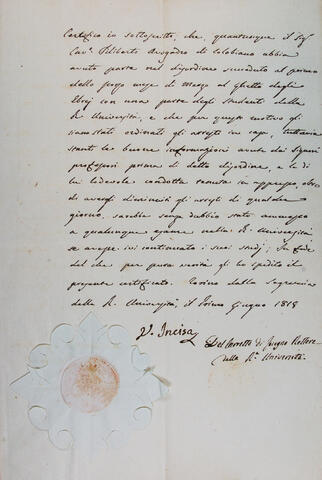 Certifico io sottoscritto, che, quantunque il Sig.
Cav. Filiberto Avogadro di Colobiano abbia
avuto parte nel disordine succeduto al primo
dello scorso mese di Maggio al Ghetto degli
Ebrei con una parte degli Studenti della
R. Università, e che per questo motivo gli
siano stati ordinati gli arresti in casa, tuttavia
stante le buone informazioni avute dai Signori
Professori prima di detto disordine, e la di
lui lodevole condotta tenuta in appresso
di avergli diminuiti gli arresti di qualche
giorno, sarebbe senza dubbio stato ammesso
a qualunque esame nella R. Università
se avesse ivi continuato i suoi studj; In fede
del che per pura verità gli ho spedito il
presente certificato. Torino dalla Segreteria
della R. Università, il primo Giugno 1818
V. Incisa
Del Carretto di Rettore
della R. Università